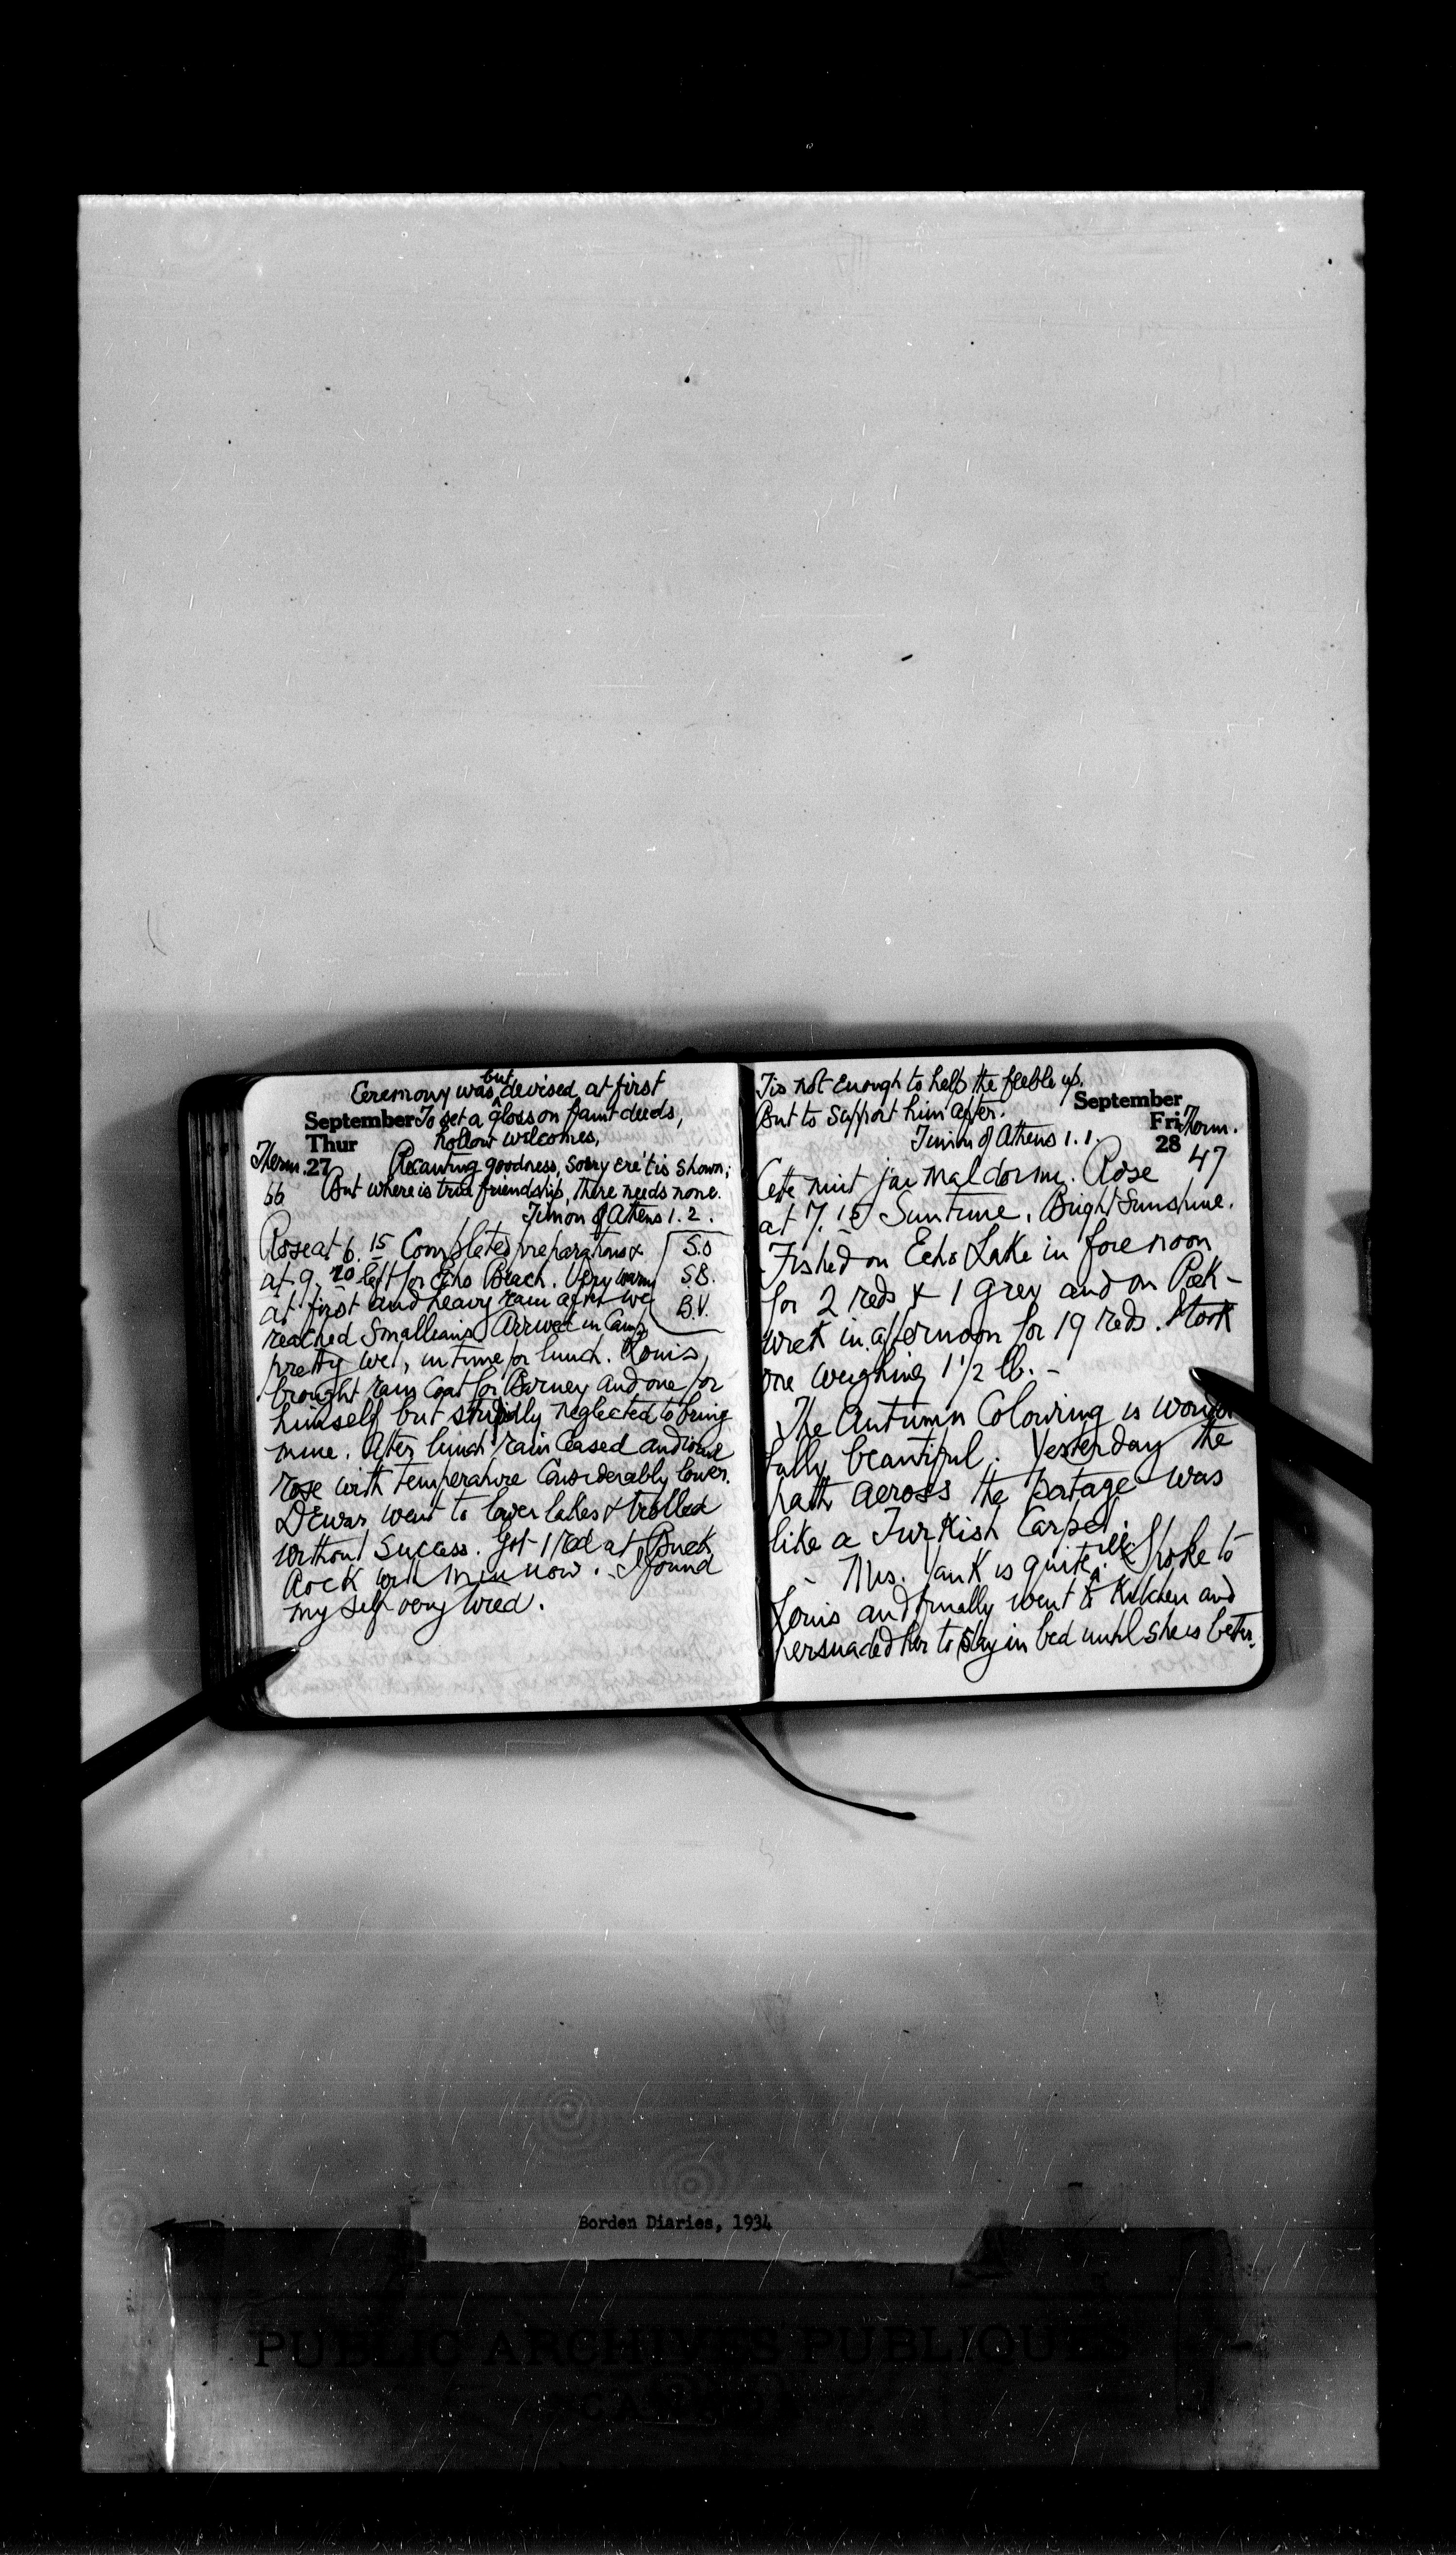 Ceremony was but devised at first
September To set a gloss on faint deeds,
Thur hollow welcomes,
Therm. 27 Recanting goodness, sorry ere 'tis shown;
66 But where is true friendship, there needs none.
Timon of Athens 1. 2.
Rose at 6.15 Completed preparations & S.O
at 9.20 left for Echo Beach. Very warm S.B.
at first and heavy rain after we B.V.
reached Smallians. Arrived in Camp
pretty wet, in time for lunch. Louis,
brought rain Coat for Barney and one for
himself but stupidly neglected to bring
mine. After lunch rain Ceased and wind
rose with temperature Considerably lower.
Dewar went to lower lakes & trolled
without Success. Got 1 red at Buck
Rock with minnow. I found
my self very tired.
Tis not Enough to help the feeble up.
But to Support him after. September
Timon of Athens 1. 1. Fri Therm.
28 47
Cette nuit j'ai mal dormi. Rose
at 7.15 Suntime. Bright Sunshine.
Fished on Echo Lake in fore noon
for 2 reds & 1 grey and on
in afternoon for 19 reds.
one weighing 1 1/2 lb. -
The Autumn Colouring is wonder
fully beautiful. Yesterday the
path across the Portage was
like a Turkish Carpet.
- Mrs. Yank is quite ill & Spoke to
Louis and finally went to Kitchen and
persuaded her to stay in bed until she is better.
Borden Diaries, 1934
PUBLIC ARCHIVES PUBLIQUES
CANADA